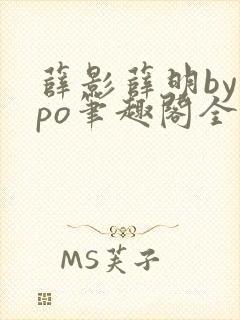 薛影薛明by
po笔趣阁全
MS芙子